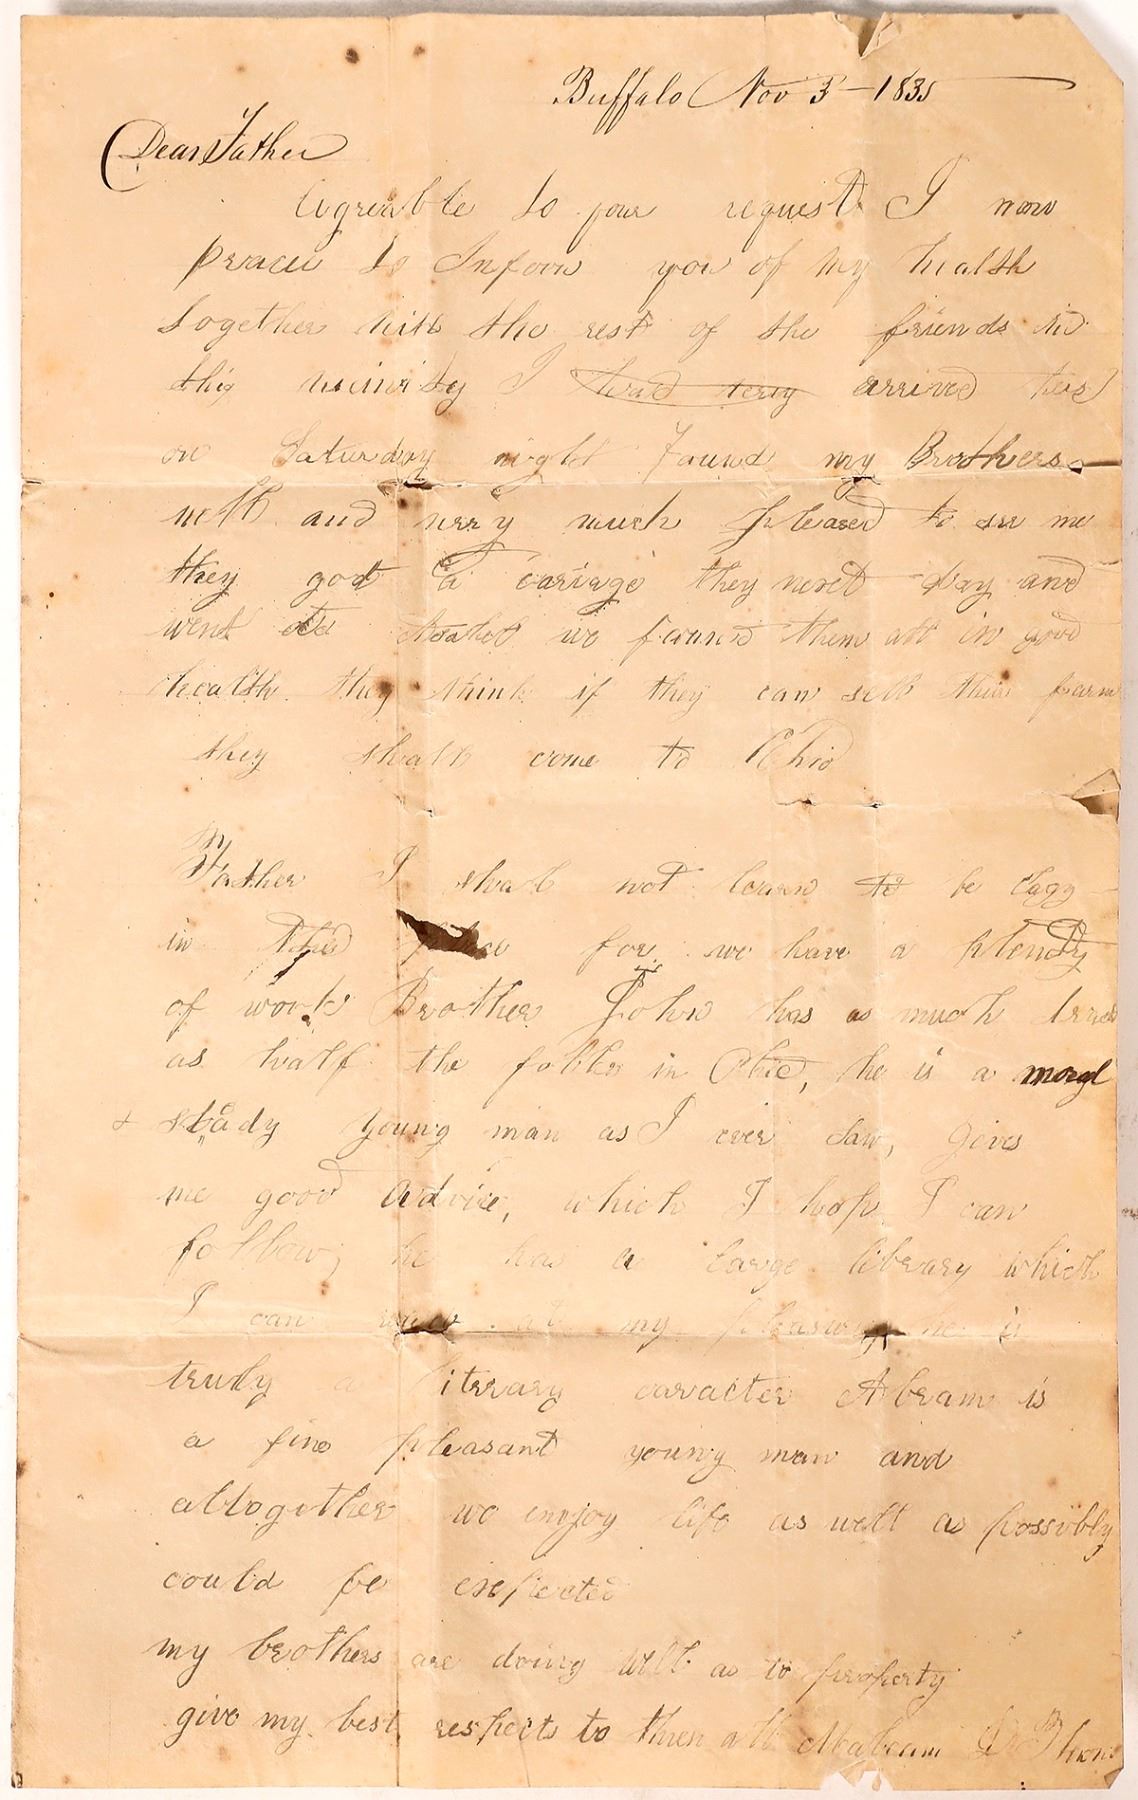 Buffalo Nov 3 - 1835
Dear Father
Agreable to your request I now
to Inform you of my health
together with the rest of the friends in
this I arrived here
on Saturday night Found my Brothers
well and very much pleased to see me
they got a cariage they next day and
went we found them all in good
health they think if they can sell their farm
they shall come to Ohio
Father I shall not learn to be lazy
in this place for we have a plenty
of work Brother John has as much
as half the in Ohio, he is a moral
& steady young man as I ever saw, gives
me good advice, which I hope I can
follow, he has a large library which
I can at my pleasure he is
truly a literary caracter Abram is
a fine pleasant young man and
altogether we enjoy life as well as possibly
could be expected
my brothers are doing well as to property
give my best respects to them all